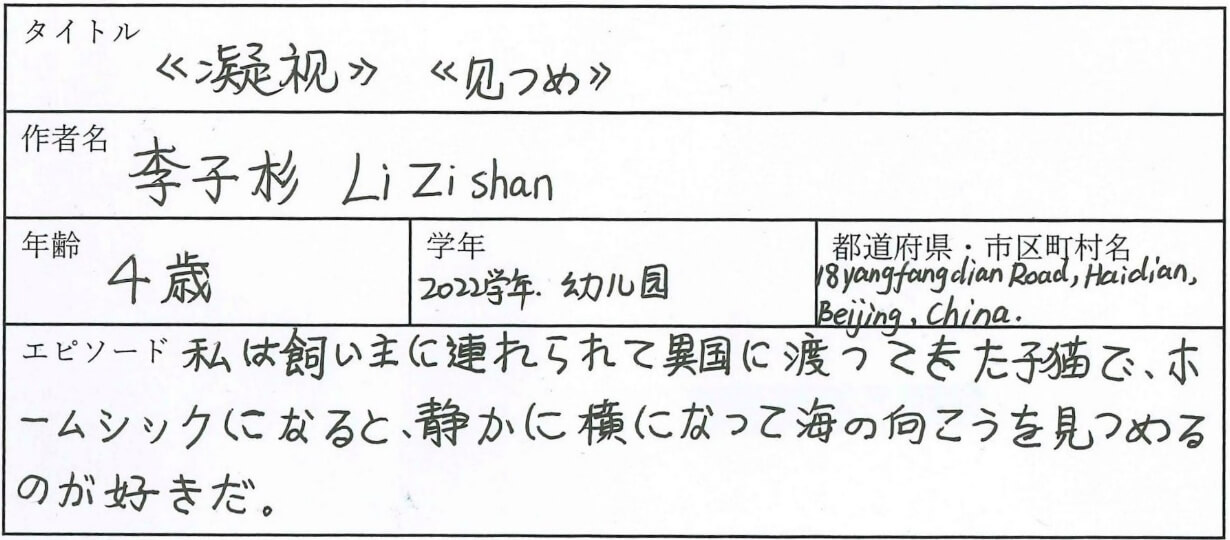 タイトル
《凝视》 《见つめ》
作者名
李子杉 Li Zi shan
年齢
4歳
学年
2022学年. 幼儿园
都道府県・市区町村名
18 yangfangdian Road, Haidian,
Beijing, China.
エピソード 私は飼い主に連れられて異国に渡ってきた子猫で、ホ
ームシックになると、静かに横になって海の向こうを見つめる
のが好きだ。